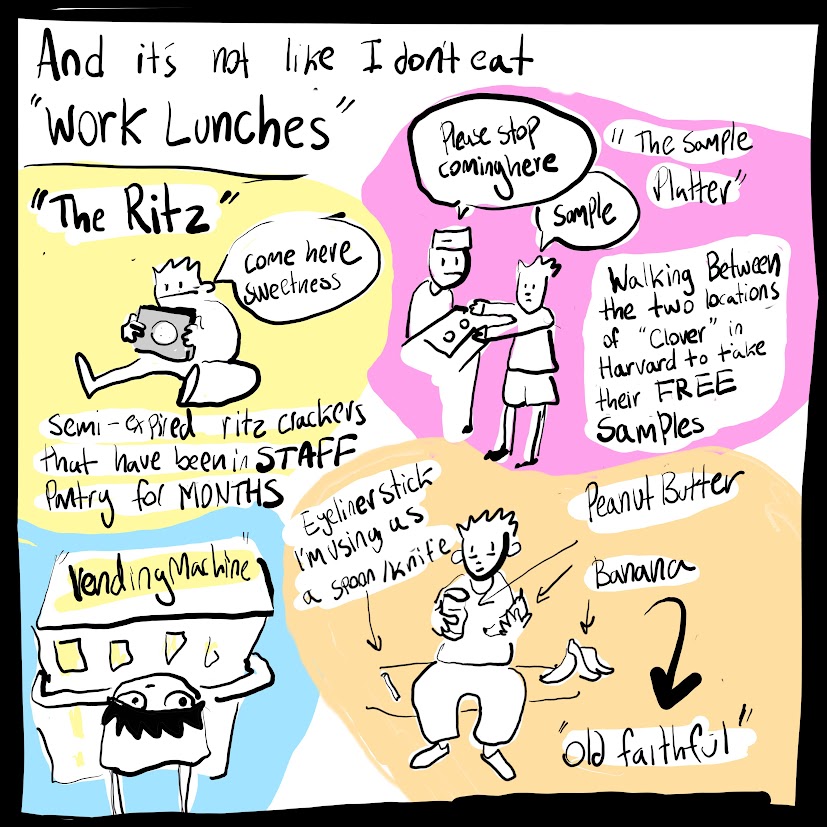 And it's not like I don't eat
"Work Lunches"
"The Ritz"
come here
sweetness
semi-expired ritz crackers
that have been in STAFF
Pantry for MONTHS
Please stop
coming here
Sample
"The Sample
Platter"
Walking Between
the two locations
of "Clover" in
Harvard to take
their FREE
Samples
"Vending Machine"
Eyeliner stick
I'm using as
a spoon/knife
Peanut Butter
Banana
"Old faithful"